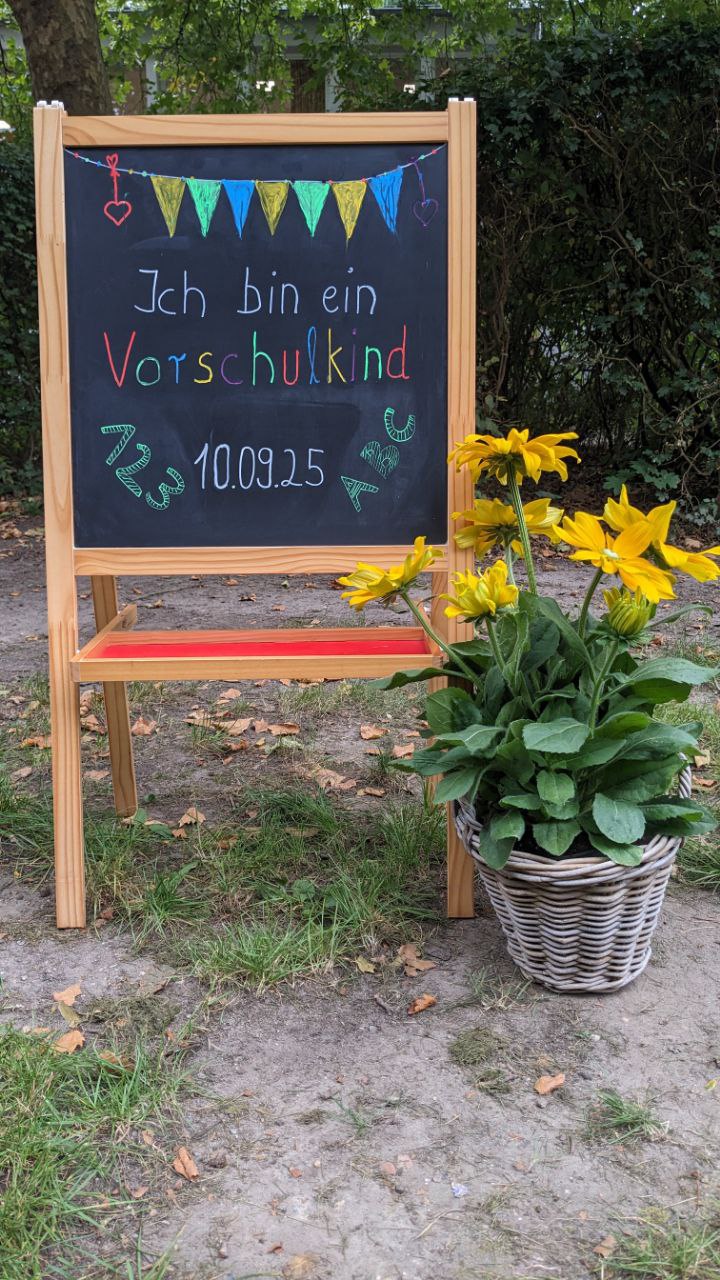 Ich bin ein
Vorschulkind
123 10.09.25 ABC